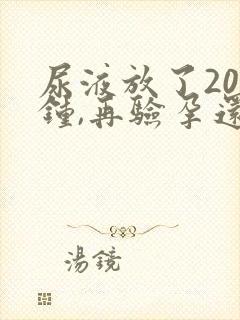 尿液放了20
鐘,再驗孕還
湯鏡